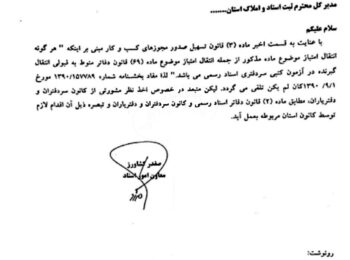 مدیر کل محترم ثبت اسناد و املاک استان........
سلام علیکم
با عنایت به قسمت اخیر ماده (۳) قانون تسهیل صدور مجوزهای کسب و کار مبنی بر اینکه " هر گونه
انتقال امتیاز موضوع ماده مذکور از جمله انتقال امتیاز موضوع ماده (۶۹) قانون دفاتر منوط به قبولی انتقال
گیرنده در آزمون کتبی سردفتری اسناد رسمی می باشد." لذا مفاد بخشنامه شماره ۱۳۹۰/۱۵۷۷۸۹ مورخ
۱۳۹۰/۹/۱ کان لم یکن تلقی می گردد. لیکن متبعد در خصوص اخذ نظر مشورتی از کانون سردفتران و
دفتریاران، مطابق ماده (۲) قانون دفاتر اسناد رسمی و کانون سردفتران و دفتریاران و تبصره ذیل آن اقدام لازم
توسط کانون استان مربوطه بعمل آید.
صفدر کشاورز
معاون امور اسناد
رونوشت: